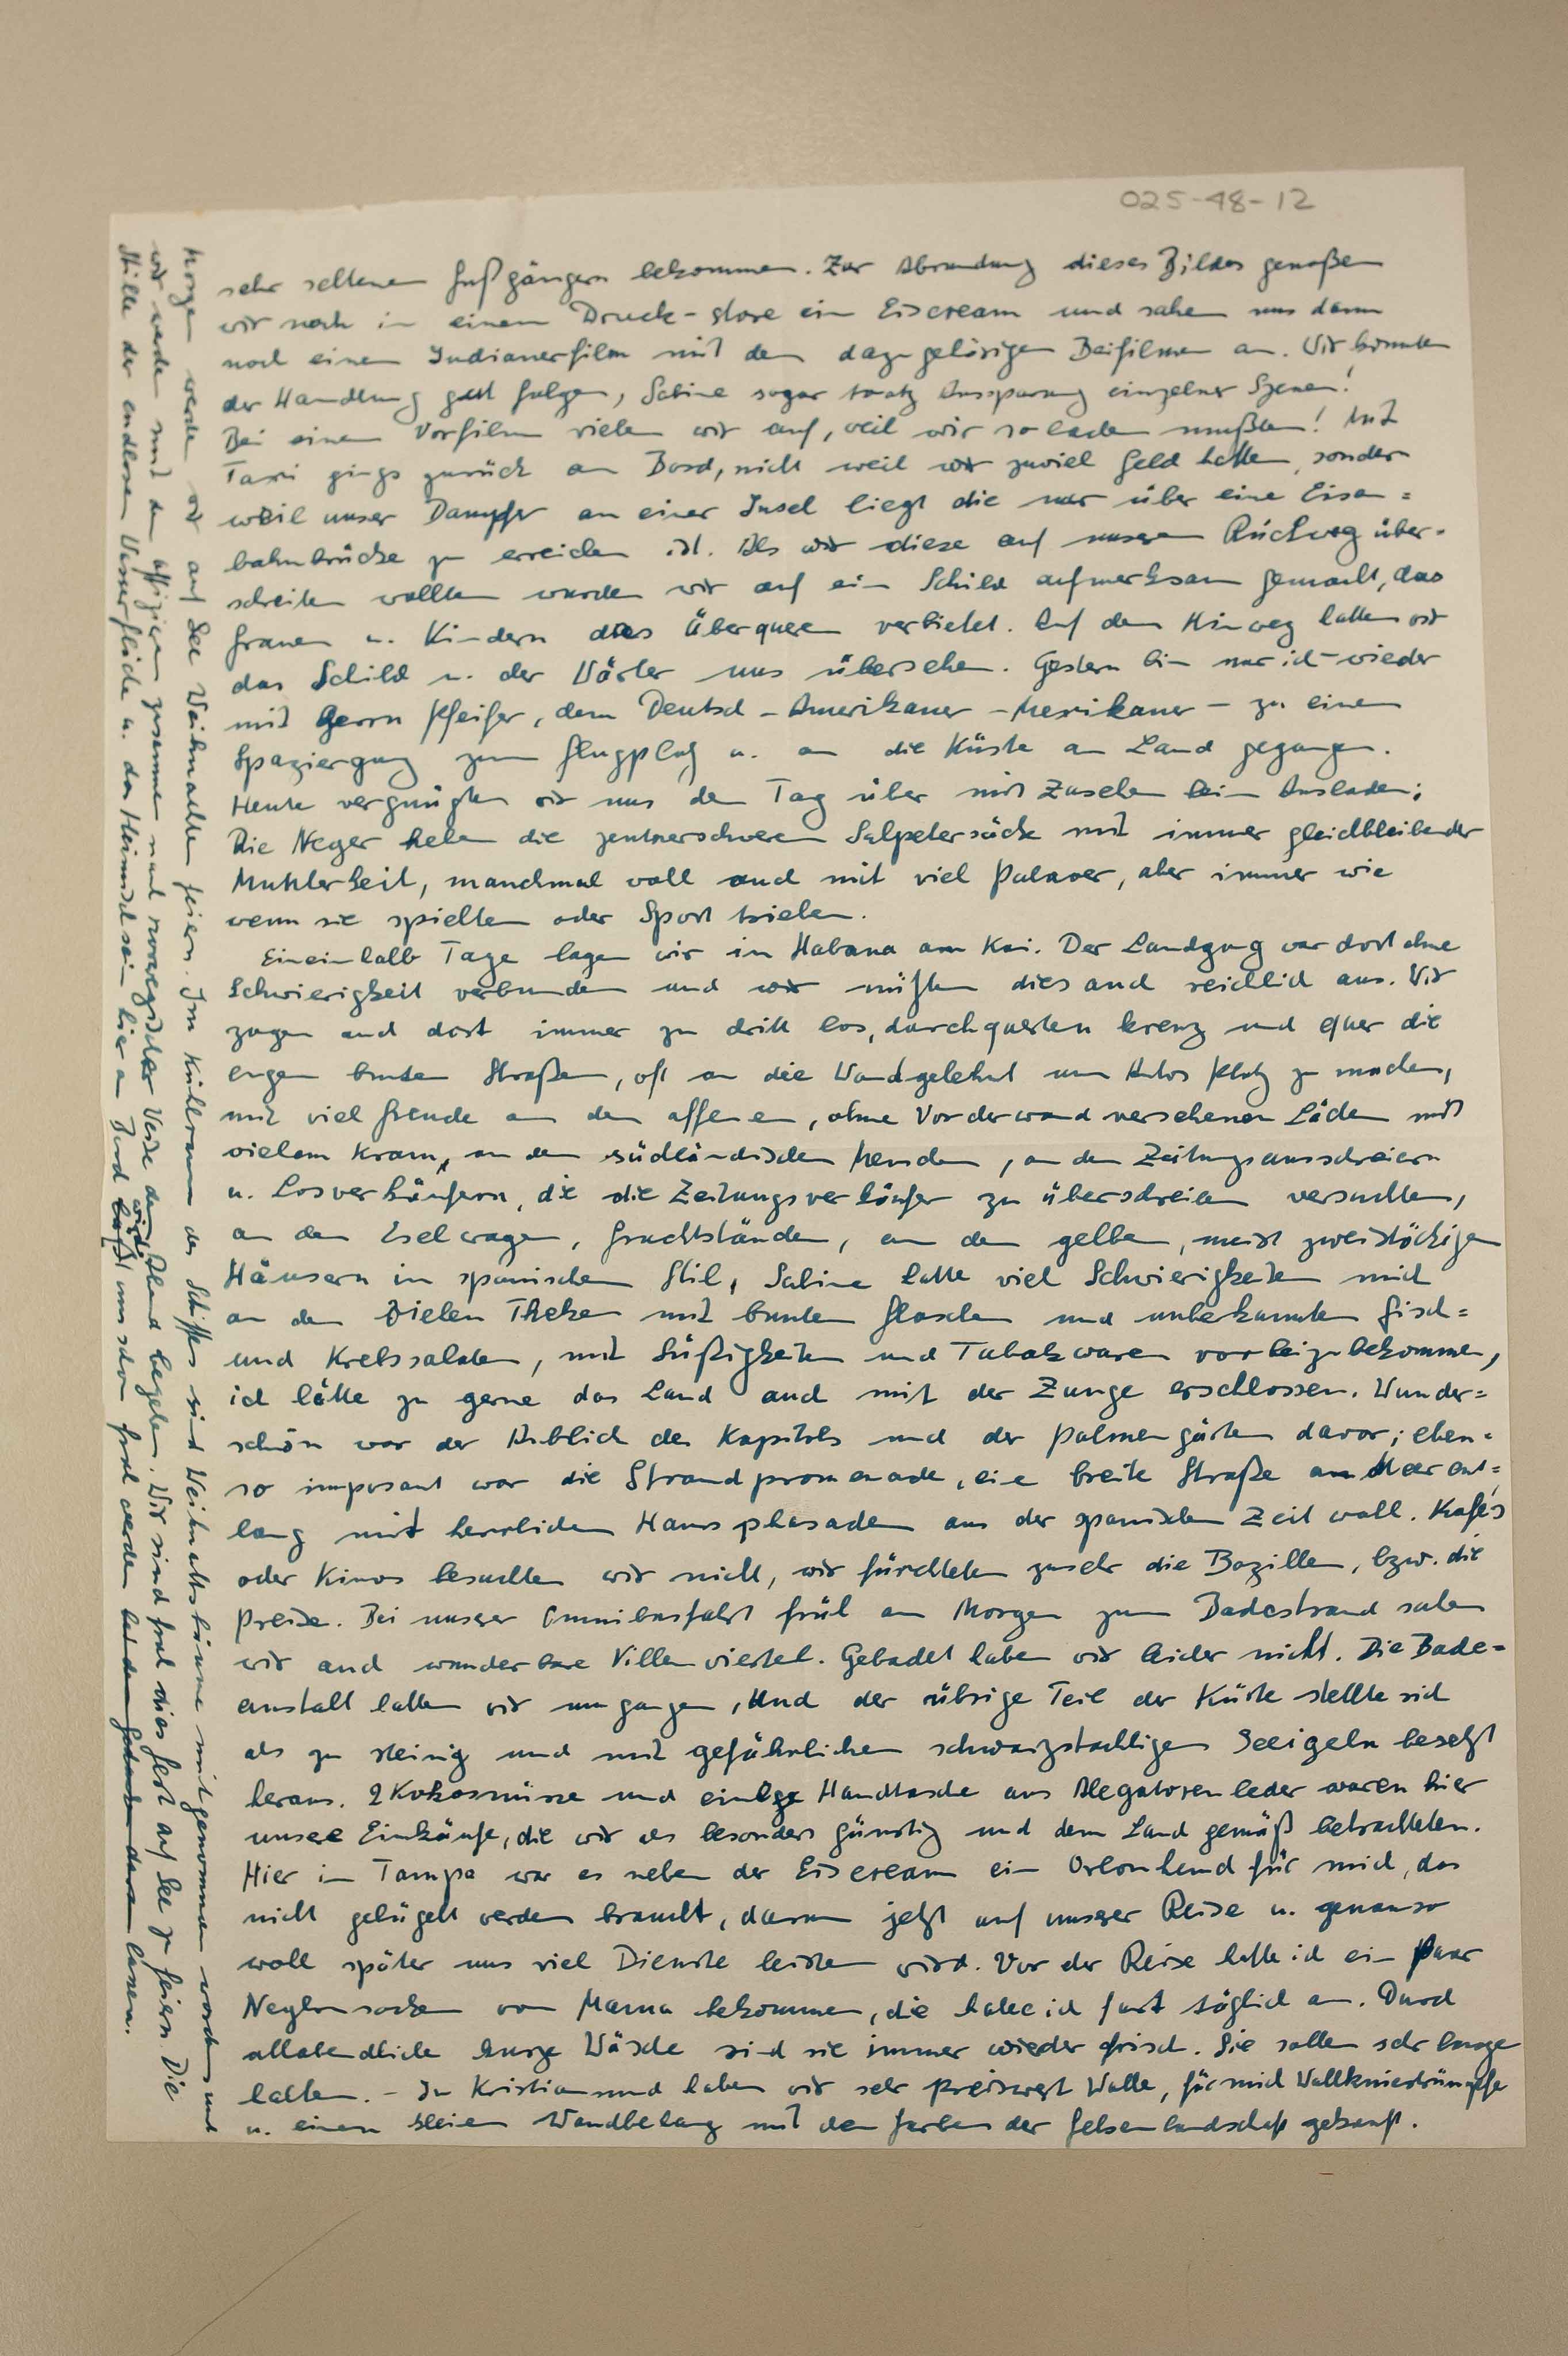 025-48-12
sehr seltenen Fußgängern bekommen. Zur Abrundung dieses Bildes genoßen
wir noch in einem Druck-store ein Eiscream und sahen uns dann
noch einen Indianerfilm mit den dazugehörigen Beifilmen an. Wir konnten
der Handlung gut folgen, Sabine sogar trotz Aussparung einzelner Szenen!
Bei einem Vorfilm vielen wir auf, weil wir so lachen mußten! Mit
Taxi gings zurück an Bord, nicht weil wir zuviel Geld hatten, sonder
weil unser Dampfer an einer Insel liegt die nur über eine Eisen=
bahnbrücke zu erreichen ist. Als wir diese auf unserem Rückweg über-
schreiten wollten wurden wir auf ein Schild aufmerksam gemacht, das
Frauen u. Kindern das Überqueren verbietet. Auf dem Hinweg hatten wir
das Schild u. der Wärter uns übersehen. Gestern bin nur ich wieder
mit Herrn Pfeifer, dem Deutsch-Amerikaner-Mexikaner - zu einem
Spaziergang zum Flugplatz u. an die Küste an Land gegangen.
Heute vergnügten wir uns den Tag über mit Zusehen beim Ausladen;
Die Neger heben die zentnerschweren Salpetersäcke mit immer gleichbleibender
Munterkeit, manchmal wohl auch mit viel Palaver, aber immer wie
wenn sie spielten oder Sport trieben.
Eineinhalb Tage lagen wir in Habana am Kai. Der Landgang war dort ohne
Schwierigkeit verbunden und wir nützten dies auch reichlich aus. Wir
zogen auch dort immer zu dritt los, durchquerten kreuz und quer die
engen bunten Straßen, oft an die Wand gelehnt um Autos Platz zu machen,
mit viel Freude an den offenen, ohne Vorderwand versehenen Läden mit
vielem Kram, an den südländischen Menschen, an den Zeitungsausschreiern
u. Losverkäufern, die die Zeitungsverkäufer zu überschreien versuchten,
an den Eselwagen, Fruchtständen, an den gelben, meist zweistöckigen
Häusern in spanischem Stil, Sabine hatte viel Schwierigkeiten mich
an den vielen Theken mit bunten Flaschen und unbekannten Fisch=
und Krebssalaten, mit Süßigkeiten und Tabakwaren vorbeizubekommen,
ich hätte zu gerne das Land auch mit der Zunge erschlossen. Wunder=
schön war der Anblick des Kapitols und der Palmengärten davor; eben=
so imposant war die Strandpromenade, eine breite Straße am Meer ent=
lang mit herrlichen Hausphasaden aus der spanischen Zeit wohl. Kafes
oder Kinos besuchten wir nicht, wir fürchteten zusehr die Bazillen, bzw. die
Preise. Bei unserer Omnibusfahrt früh am Morgen zum Badestrand sahen
wir auch wunderbare Villenviertel. Gebadet haben wir leider nicht. Die Bade=
anstalt hatten wir umgangen, Und der übrige Teil der Küste stellte sich
als zu steinig und mit gefährlichen schwarzstachligen Seeigeln besetzt
heraus. 2 Kokosnüsse und eine Handtasche aus Alegatorenleder waren hier
unsere Einkäufe, die wir als besonders günstig und dem Land gemäß betrachteten.
Hier in Tampa war es neben der Eiscream ein Orlonhemd für mich, das
nicht gebügelt werden braucht, darum jetzt auf unserer Reise u. genauso
wohl später uns viel Dienste leisten wird. Vor der Reise hatte ich ein Paar
Neylonsocken von Mama bekommen, die habe ich fast täglich an. Durch
allabendliche kurze Wäsche sind sie immer wieder frisch. Sie sollen sehr lange
halten. - In Kristiansund haben wir sehr preiswert Wolle, für mich Wollkniestrümpfe
u. einen kleinen Wandbehang mit den Farben der Felsenlandschaft gekauft.
Morgen werden wir auf See Weihnachten feiern. Im Kühlraum des Schiffes sind Weihnachtsbäume mitgenommen worden und
wir werden mit den Offizieren zusammen nach norwegischer Weise den Abend begehen. Wir sind froh dies Fest auf See zu feiern. Die
Stille der endlosen Wasserfläche u. das Heimischsein hier an Bord wird uns schon froh werden lassen.